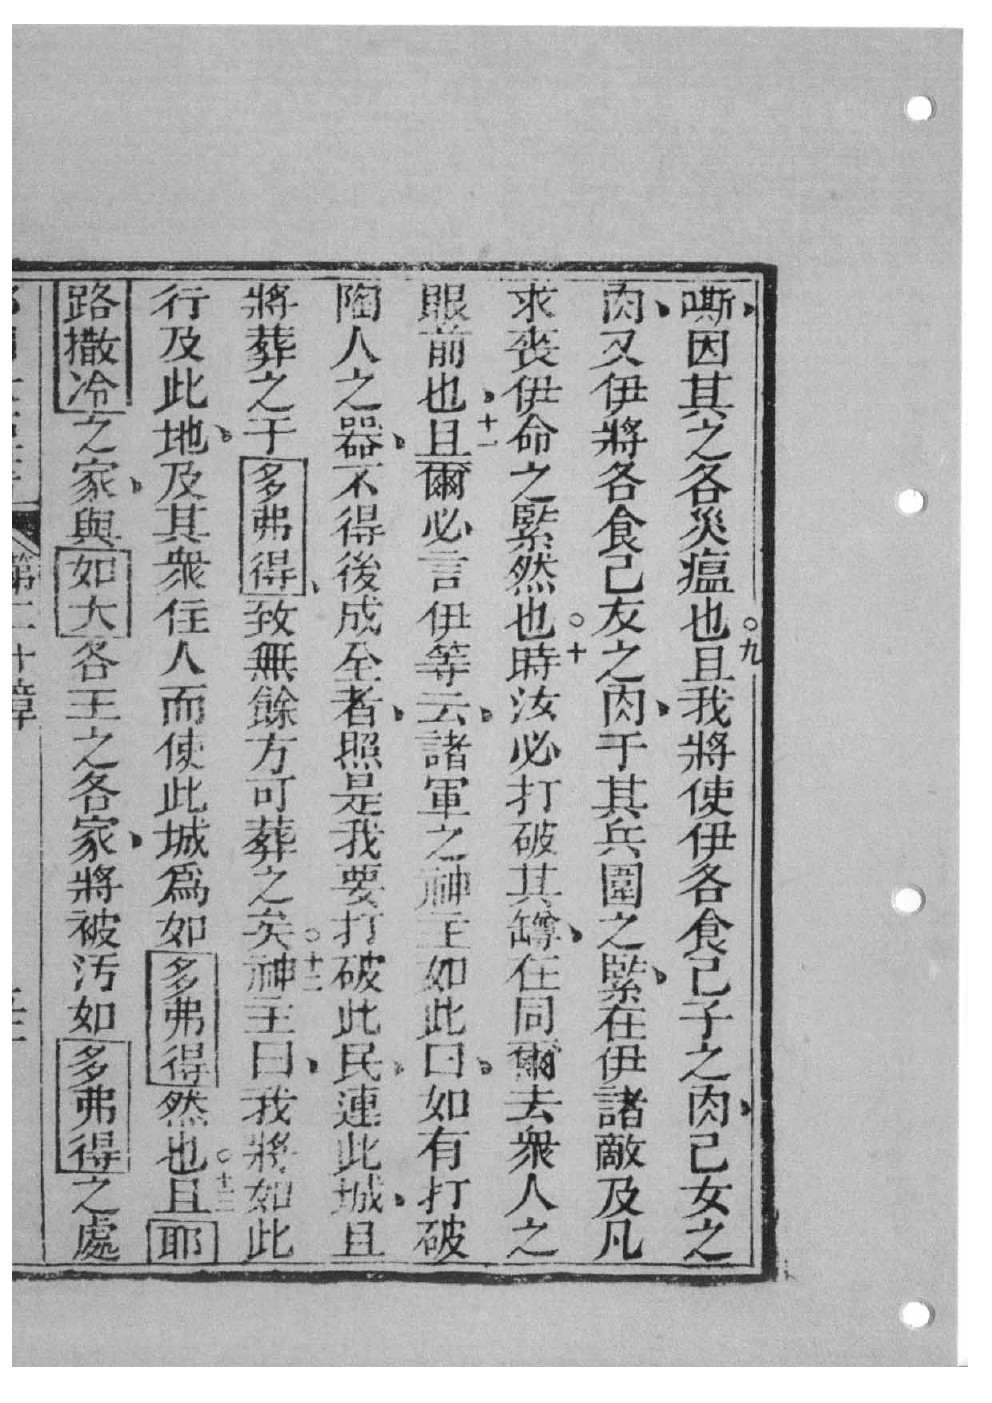 嘶、因其之各災瘟也。九且我將使伊各食己子之肉、己女之
肉、又伊將各食己友之肉、于其兵圍之緊、在伊諸敵及凡
求喪伊命之緊然也。十時汝必打破其罇、在同爾去衆人之
眼前也、十一且爾必言伊等云、諸軍之神主如此曰、如有打破
陶人之器、不得後成全者、照是我要打破此民、連此城、且
將葬之于多弗得、致無餘方可葬之矣。十二神主曰、我將如此
行及此地、及其衆住人而使此城爲如多弗得然也。十三且耶
路撒冷之家、與如大各王之各家、將被汚如多弗得之處
第二十章